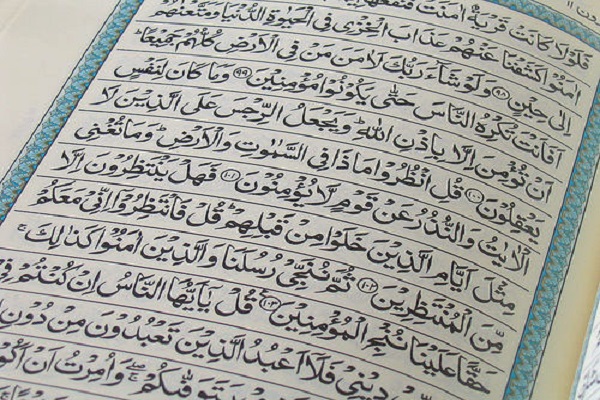 فَلَوْلَا كَانَتْ قَرْيَةٌ اٰمَنَتْ فَنَفَعَهَا
اٰمَنُوْا كَشَفْنَا عَنْهُمْ عَذَابَ الْخِزْيِ فِي الْحَيٰوةِ الدُّنْيَا وَمَتَّعْنٰهُمْ
اِلٰى حِيْنٍ ۹۸ وَلَوْ شَآءَ رَبُّكَ لَاٰمَنَ مَنْ فِي الْاَرْضِ كُلُّهُمْ جَمِيْعًا ؕ
اَفَاَنْتَ تُكْرِهُ النَّاسَ حَتّٰى يَكُوْنُوْا مُؤْمِنِيْنَ ۹۹ وَمَا كَانَ لِنَفْسٍ
اَنْ تُؤْمِنَ اِلَّا بِاِذْنِ اللّٰهِ ؕ وَيَجْعَلُ الرِّجْسَ عَلَى الَّذِيْنَ لَا
يَعْقِلُوْنَ ۱۰۰ قُلِ انْظُرُوْا مَاذَا فِي السَّمٰوٰتِ وَالْاَرْضِ ؕ وَمَا تُغْنِي
الْاٰيٰتُ وَالنُّذُرُ عَنْ قَوْمٍ لَّا يُؤْمِنُوْنَ ۱۰۱ فَهَلْ يَنْتَظِرُوْنَ اِلَّا
مِثْلَ اَيَّامِ الَّذِيْنَ خَلَوْا مِنْ قَبْلِهِمْ ؕ قُلْ فَانْتَظِرُوْٓا اِنِّيْ مَعَكُمْ
مِّنَ الْمُنْتَظِرِيْنَ ۱۰۲ ثُمَّ نُنَجِّيْ رُسُلَنَا وَالَّذِيْنَ اٰمَنُوْا كَذٰلِكَ ۚ
حَقًّا عَلَيْنَا نُنْجِ الْمُؤْمِنِيْنَ ۱۰۳ قُلْ يٰٓاَيُّهَا النَّاسُ اِنْ كُنْتُمْ فِيْ
دِيْنِيْ فَلَآ اَعْبُدُ الَّذِيْنَ تَعْبُدُوْنَ مِنْ دُوْنِ
يَتَوَفّٰىكُمْ ۖ وَاُمِرْتُ اَنْ